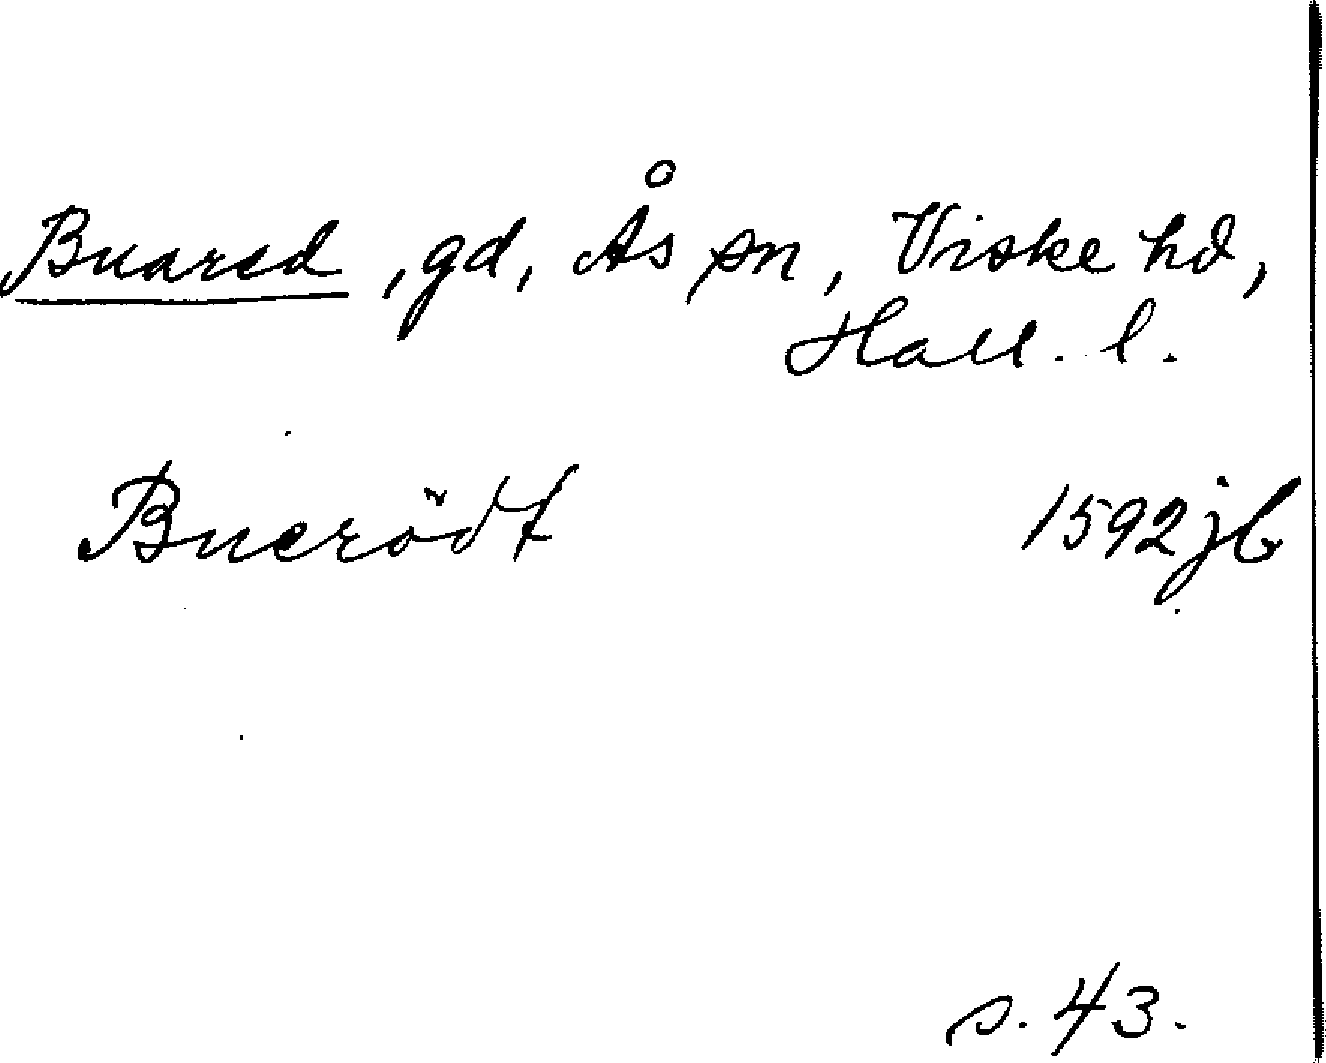 Buared, gd, Ås sn, Viske hd,
Hall. l.
Buerödt 1592 jb
s. 43.